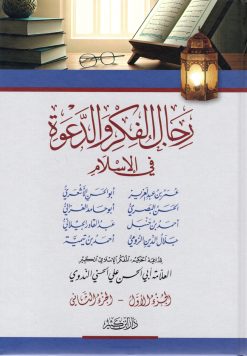 رجال الفكر والدعوة
في الإسلام
عمر بن عبد العزيز
أبو الحسن الأشعري
الحسن البصري
أبو حامد الغزالي
أحمد بن حنبل
عبد القادر الجيلاني
جلال الدين الرومي
أحمد بن تيمية
العلامة أبي الحسن علي الحسني الندوي
الجزء الأول - الجزء الثاني
دار ابن كثير